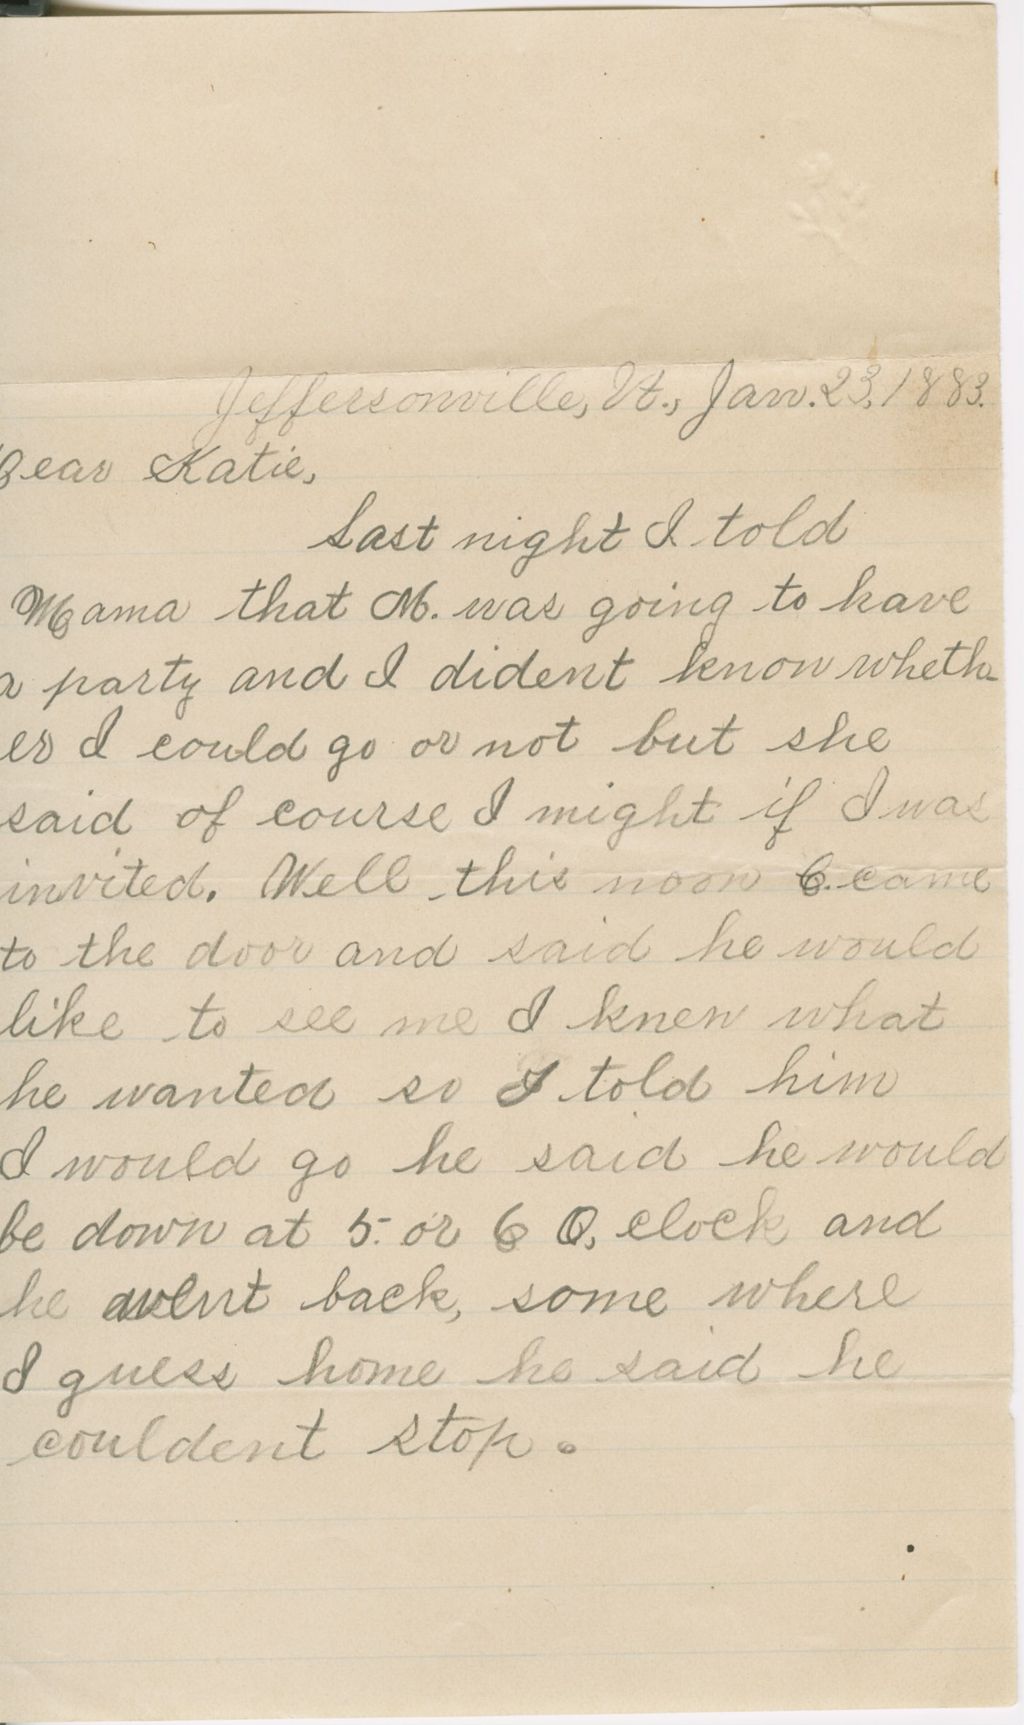 Jeffersonville, Vt., Jan. 23, 1883.
Dear Katie,
Last night I told
Mama that M. was going to have
a party and I dident know wheth-
er I could go or not but she
said of course I might if I was
invited. Well this noon C. came
to the door and said he would
like to see me I knew what
he wanted so I told him
I would go he said he would
be down at 5. or 6 O, clock and
he went back, some where
I guess home he said he
couldent stop.